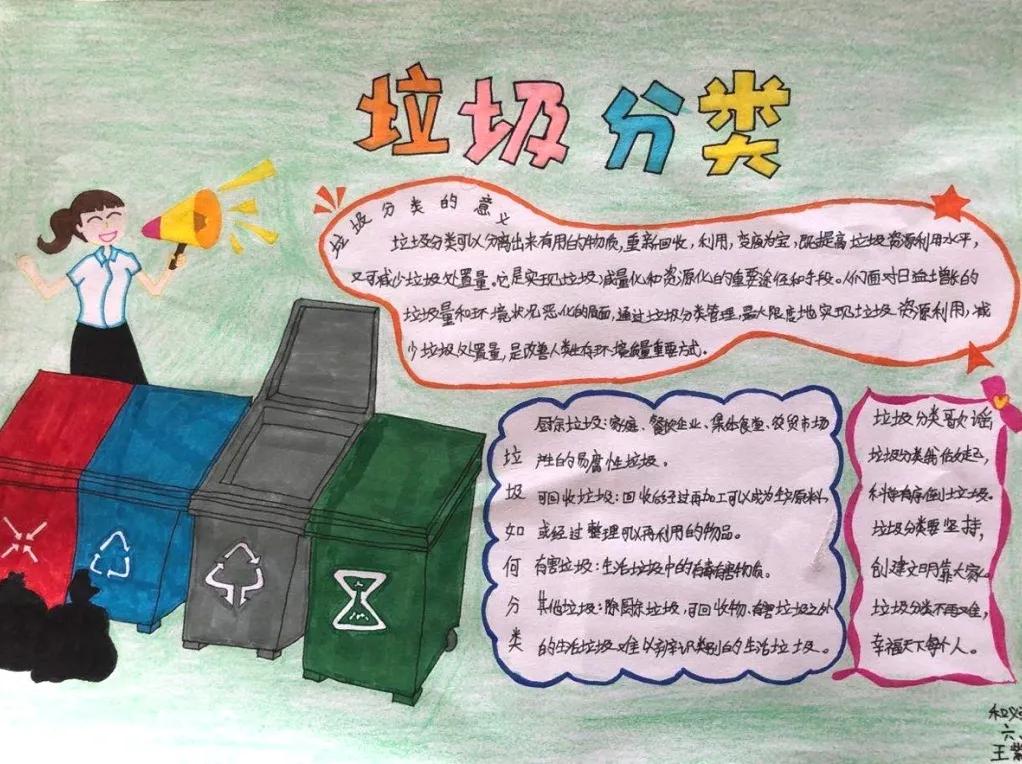 垃圾分类
垃圾分类的意义
垃圾分类可以分离出来有用的物质,重新回收,利用,变废为宝,既提高垃圾资源利用水平,
又可减少垃圾处置量。它是实现垃圾减量化和资源化的重要途径和手段。人们面对日益增长的
垃圾量和环境状况恶化的局面,通过垃圾分类管理,最大限度地实现垃圾资源利用,减
少垃圾处置量,是改善人类生存环境质量重要方式。
垃圾如何分类
厨余垃圾:家庭、餐饮企业、集体食堂、农贸市场
产生的易腐性垃圾。
可回收垃圾:回收后经过再加工可以成为生产原料
或经过整理可以再利用的物品。
有害垃圾:生活垃圾中的有毒有害物质。
其他垃圾:除厨余垃圾,可回收物、有害垃圾之外
的生活垃圾难以辨识类别的生活垃圾。
垃圾分类歌谣
垃圾分类我做起,
科学有序倒垃圾。
垃圾分类要坚持,
创建文明靠大家。
垃圾分类不再难,
幸福天下每个人。
六
王紫